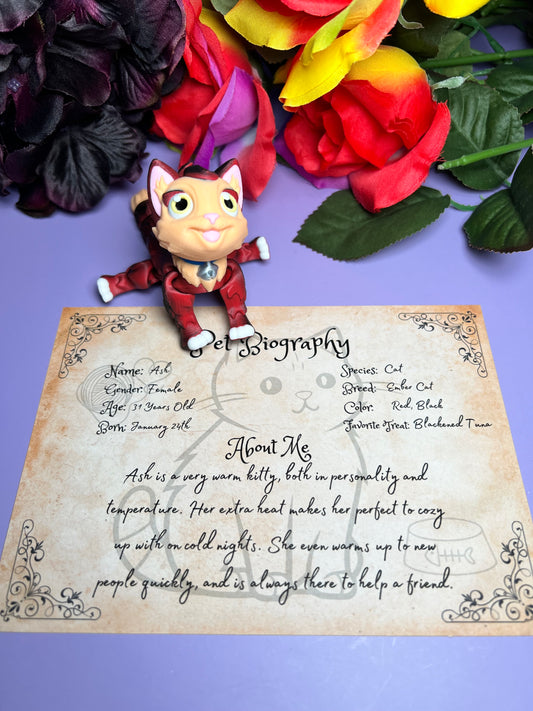 Pet Biography
Name: Ash
Species: Cat
Gender: Female
Breed: Ember Cat
Age: 31 Years Old
Color: Red, Black
Born: January 24th
Favorite Treat: Blackened Tuna
About Me
Ash is a very warm kitty, both in personality and
temperature. Her extra heat makes her perfect to cozy
up with on cold nights. She even warms up to new
people quickly, and is always there to help a friend.